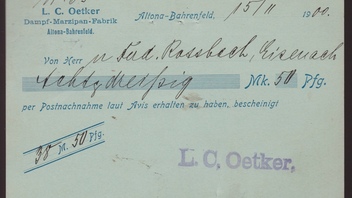 L. C. Oetker
Dampf-Marzipan-Fabrik
Altona-Bahrenfeld.
Altona-Bahrenfeld, 15/11 1900.
Von Herrn Ferd. Rossbach, Eisenach
Achtzigdreißig Mk. 50 Pfg.
per Postnachnahme laut Avis erhalten zu haben, bescheinigt
38 M. 50 Pfg.
L. C. Oetker,